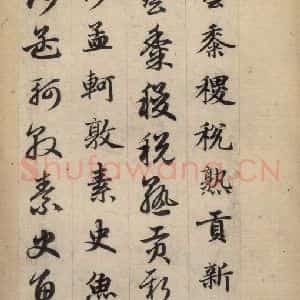 黍稷稅熟貢新
黍稷稅熟貢新
孟軻敦素史魚
孟軻敦素史魚
Shufawang.CN